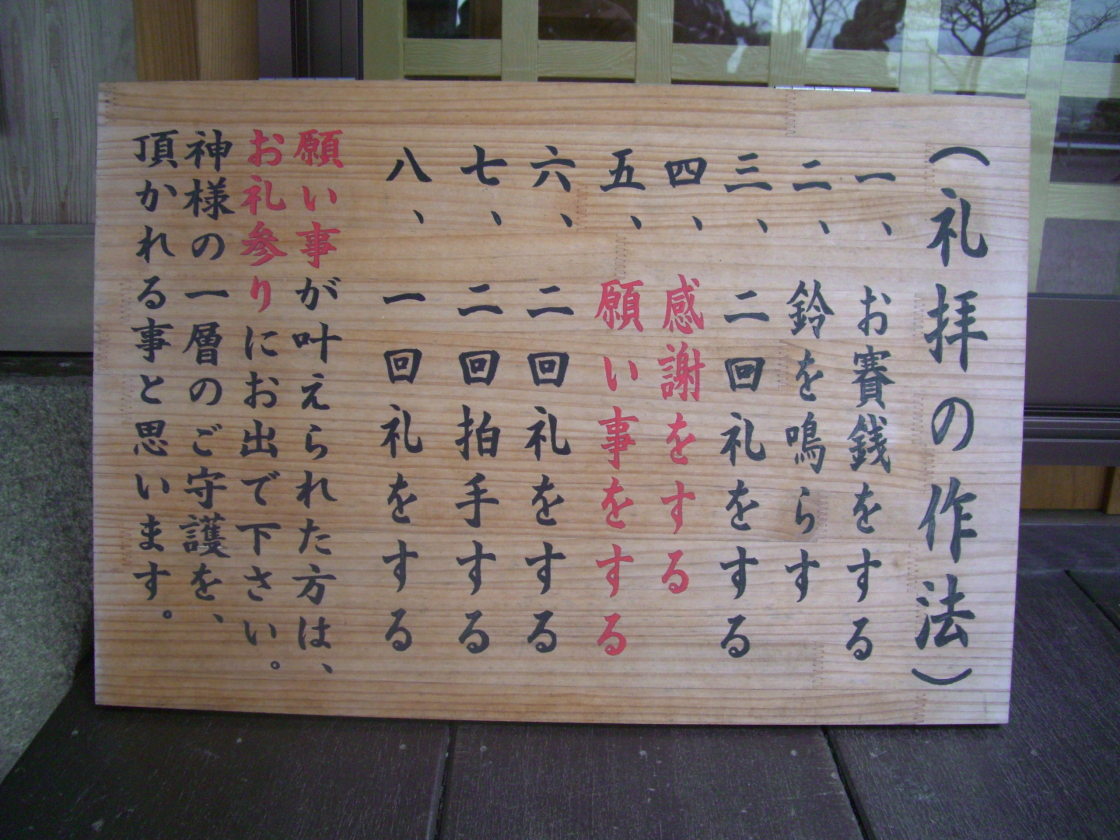 (礼拝の作法)
一、お賽銭をする
二、鈴を鳴らす
三、二回礼をする
四、感謝をする
五、願い事をする
六、二回礼をする
七、二回拍手する
八、一回礼をする
願い事が叶えられた方は、
お礼参りにお出で下さい。
神様の一層のご守護を、
頂かれる事と思います。